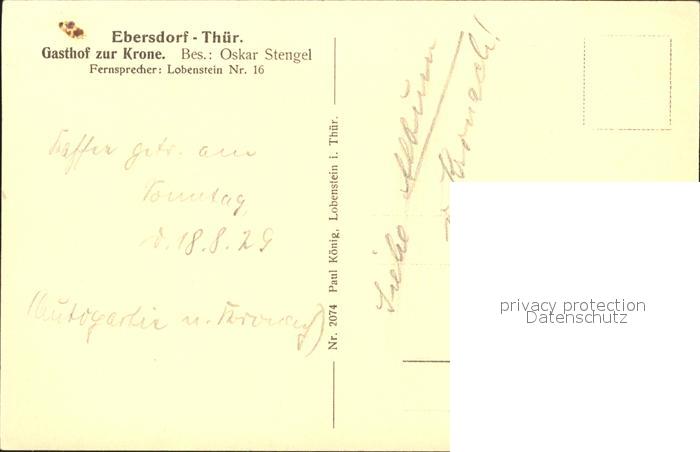 Ebersdorf - Thür.
Gasthof zur Krone. Bes.: Oskar Stengel
Fernsprecher: Lobenstein Nr. 16
Kaffee getr. am
Sonntag,
d. 18.8.29
(Autopartie n. Kronach)
Nr. 2074 Paul König, Lobenstein i. Thür.
Siehe Album
v. Kronach!
privacy protection
Datenschutz